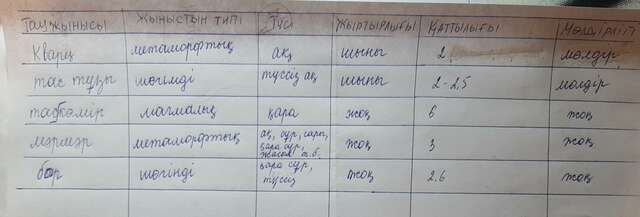 Тау жынысы Жыныстын типі Түсі Жылтырлығы Қаттылығы Мөлдірлігі
Кварц метаморфтық ақ шыны 2 мөлдір
тас тұзы шөгінді түссіз ақ шыны 2-2,5 мөлдір
таскөмір магмалық қара жоқ 6 жоқ
мәрмәр метаморфтық ақ, сұр, сары, қара сұр, жасыл т.б. жоқ 3 жоқ
бор шөгінді қара сұр, түссіз жоқ 2.6 жоқ